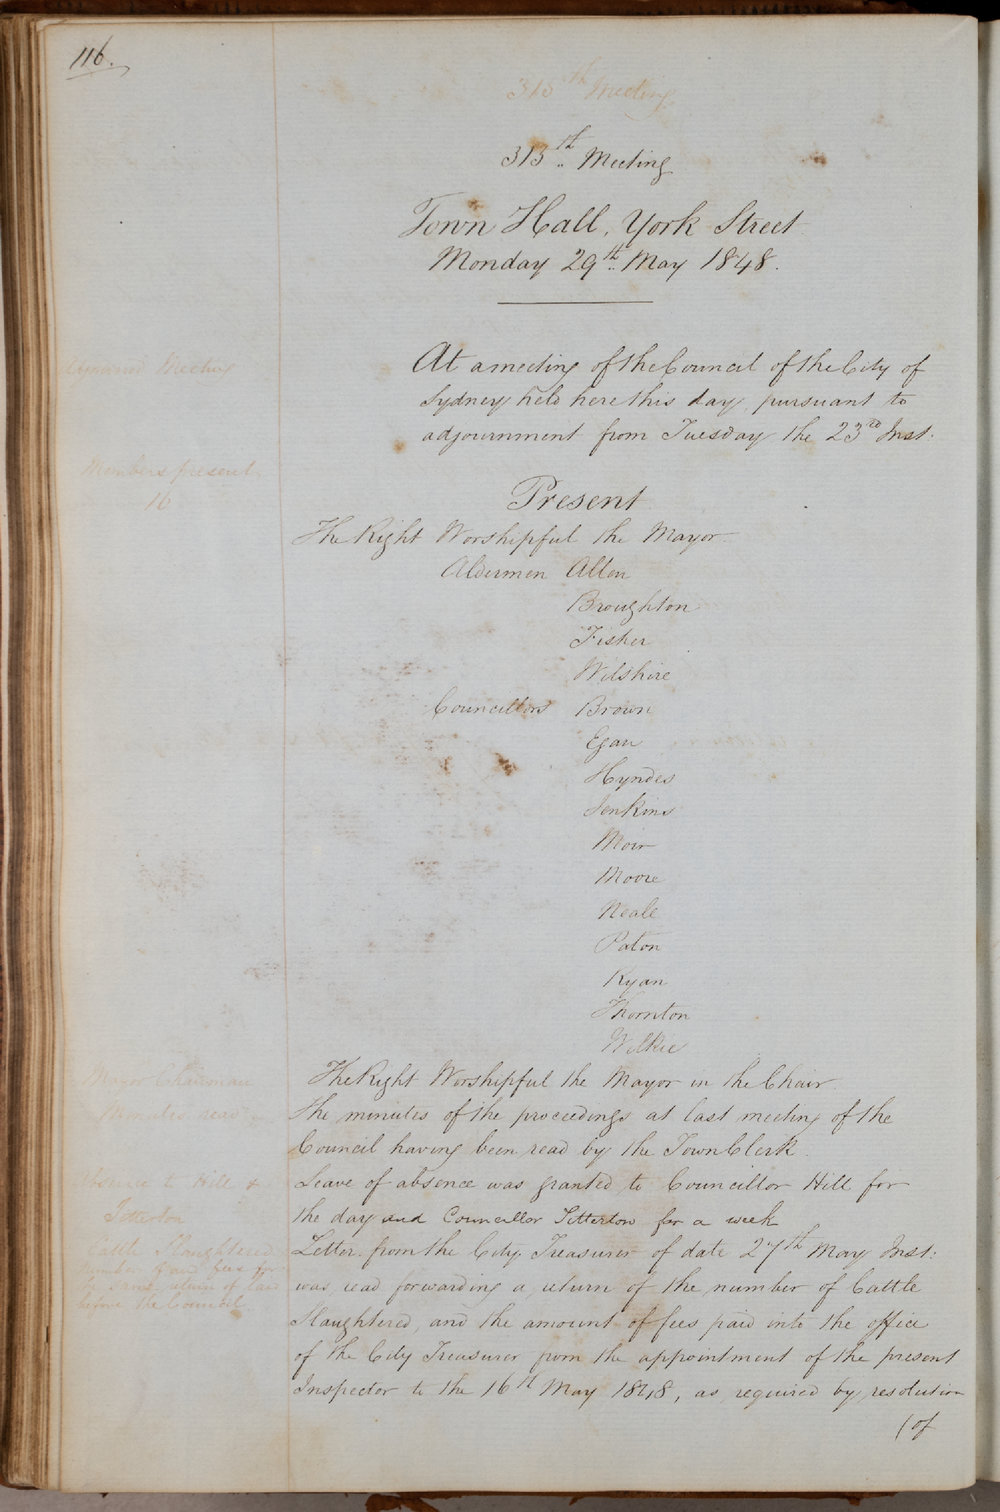 116.
313th Meeting
313th Meeting
Town Hall, York Street
Monday 29th May 1848.
Adjourned Meeting
At a meeting of the Council of the City of
Sydney held here this day, pursuant to
adjournment from Tuesday the 23rd Inst.
Members present
16
Present
The Right Worshipful the Mayor
Aldermen Allen
Broughton
Fisher
Wilshire
Councillors Brown
Egan
Hyndes
Jenkins
Moir
Moore
Neale
Paton
Ryan
Thornton
Wilkie
Mayor Chairman
The Right Worshipful the Mayor in the Chair.
Minutes read
The minutes of the proceedings at last meeting of the
Council having been read by the Town Clerk.
Absence to Hill &
Titterton
Leave of absence was granted to Councillor Hill for
the day and Councillor Titterton for a week
Cattle Slaughtered
number of and fees for
return of laid
before the Council.
Letter from the City Treasurer of date 27th May Inst:
was read forwarding a return of the number of Cattle
Slaughtered, and the amount of fees paid into the office
of the City Treasurer from the appointment of the present
Inspector to the 16th May 1848, as required by resolution
(of